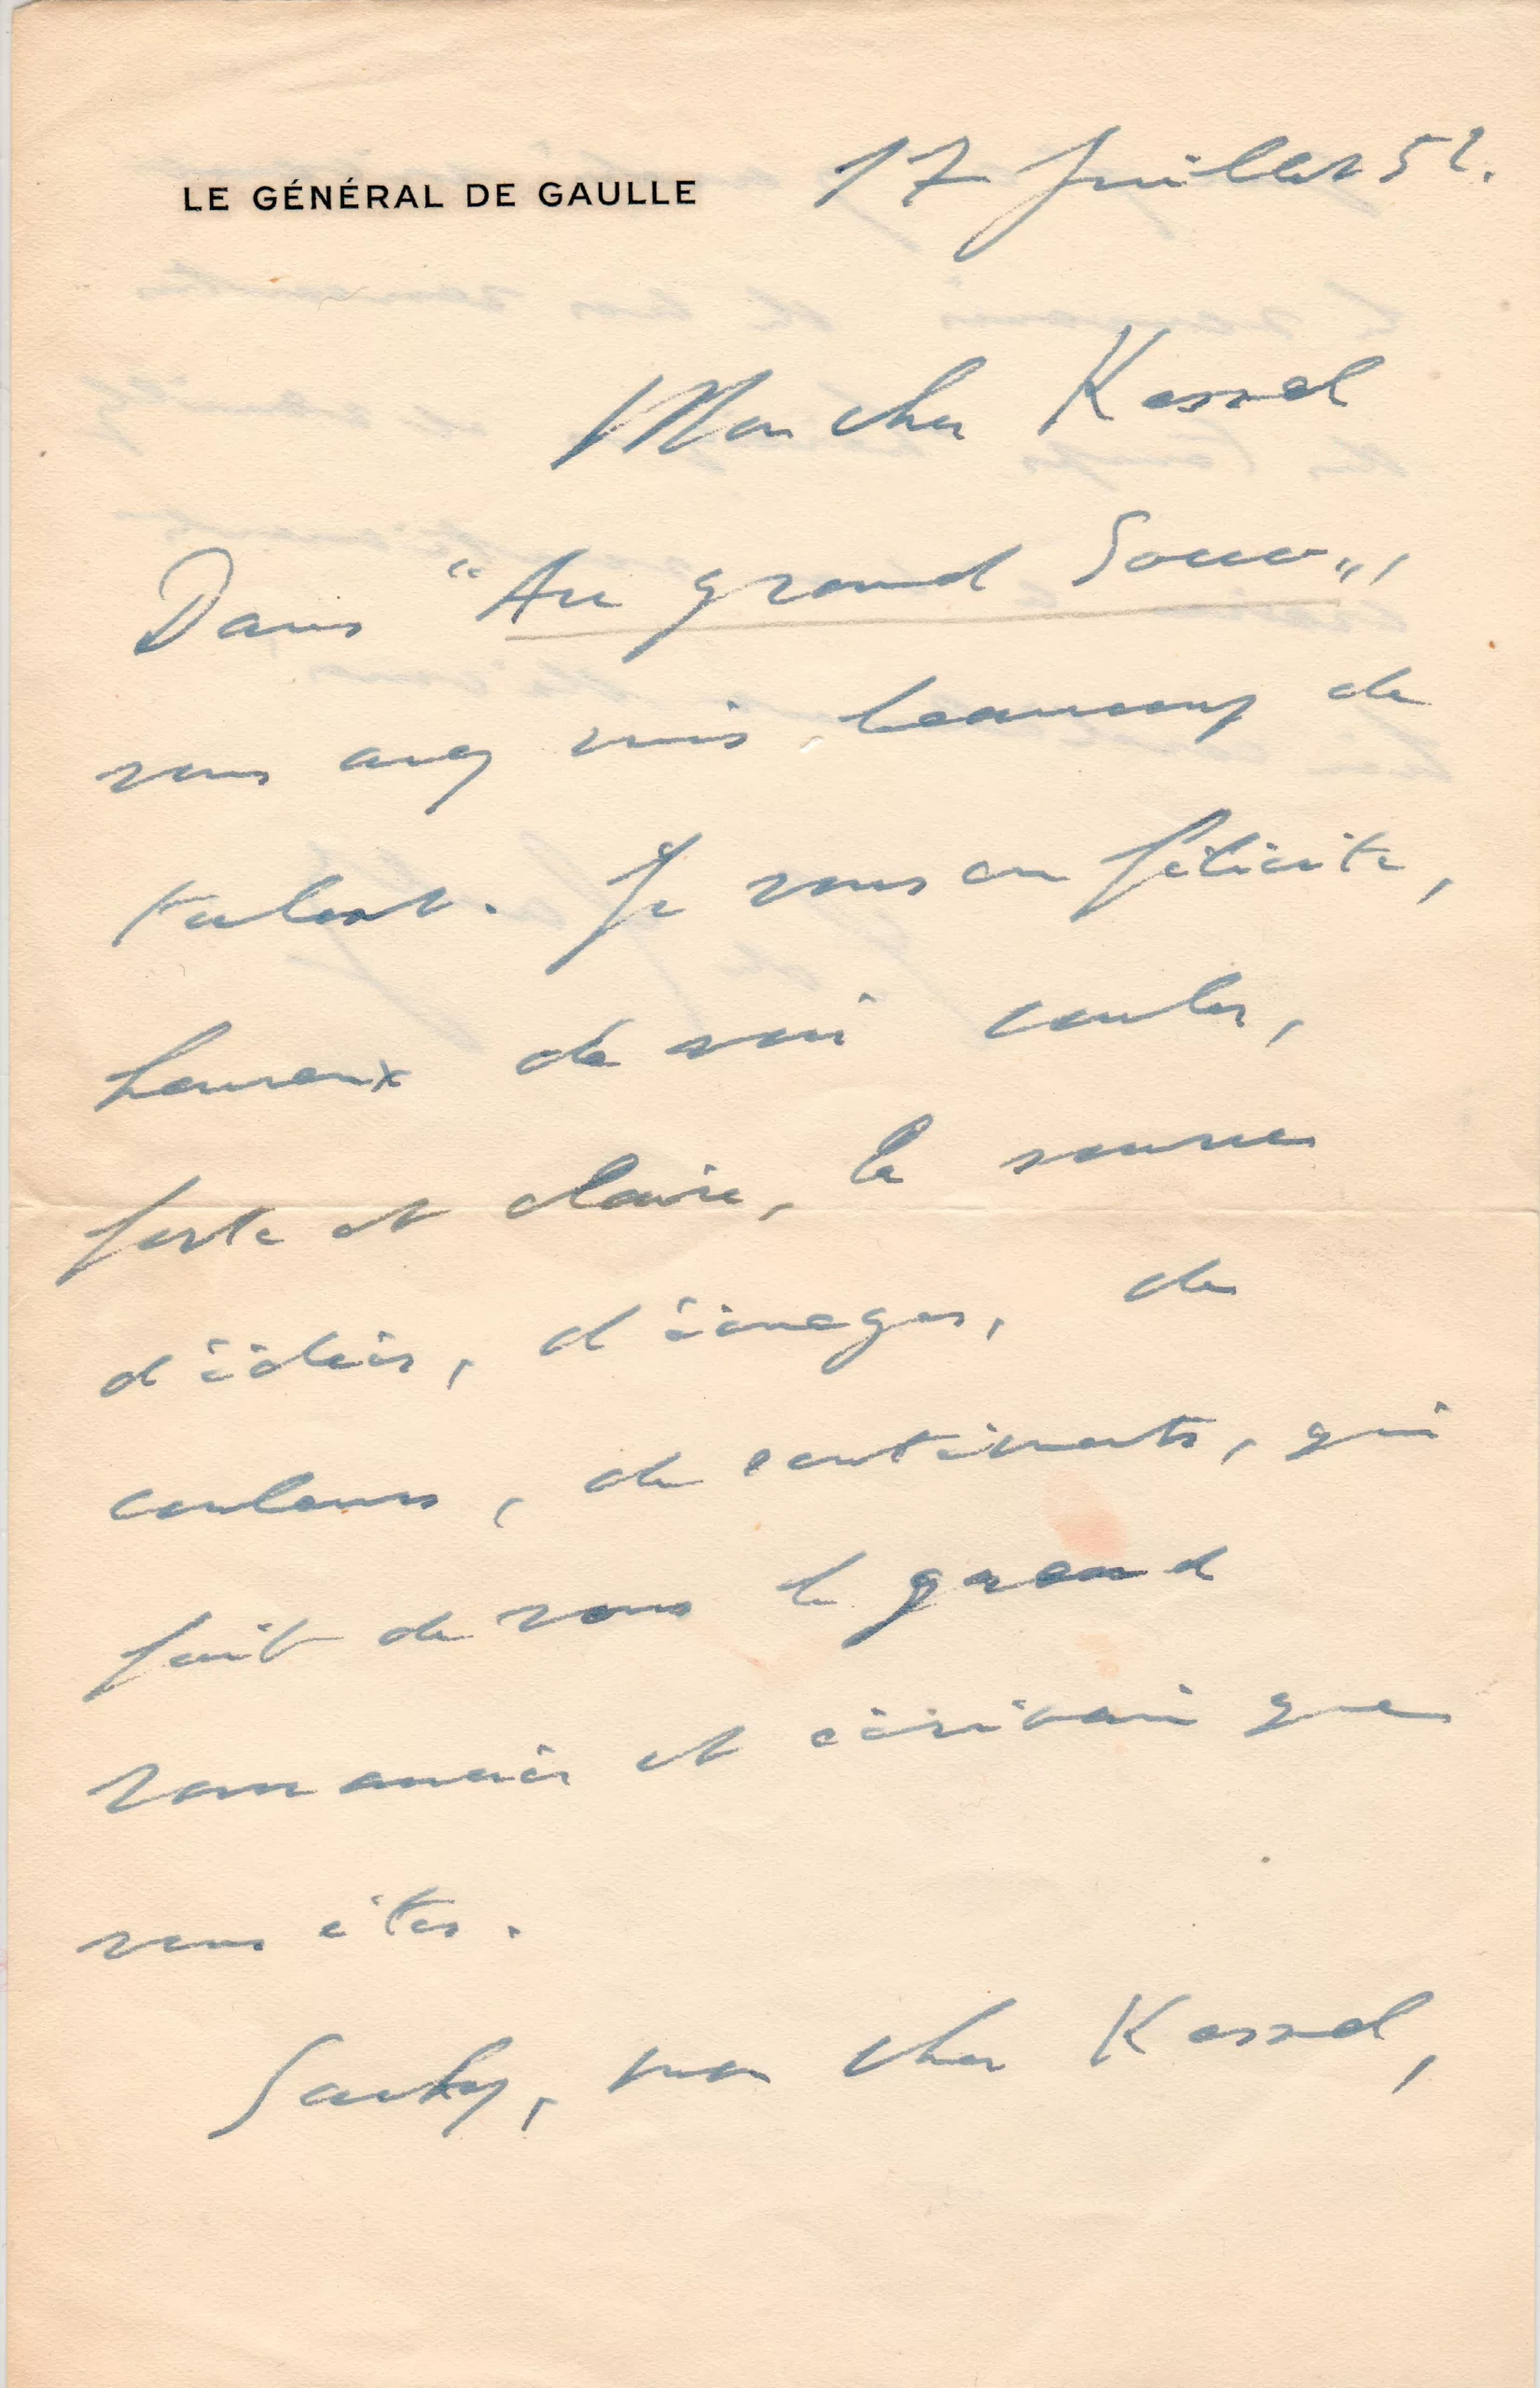 LE GÉNÉRAL DE GAULLE
17 Juillet 52.
Mon cher Kessel
Dans "Au grand Socco",
vous avez mis beaucoup de
talent. Je vous en félicite,
heureux de voir couler,
forte et claire, la source
d'idées, d'images, de
couleurs, de sentiments, qui
fait de vous le grand
romancier et écrivain que
vous êtes.
Sachez, mon cher Kessel,